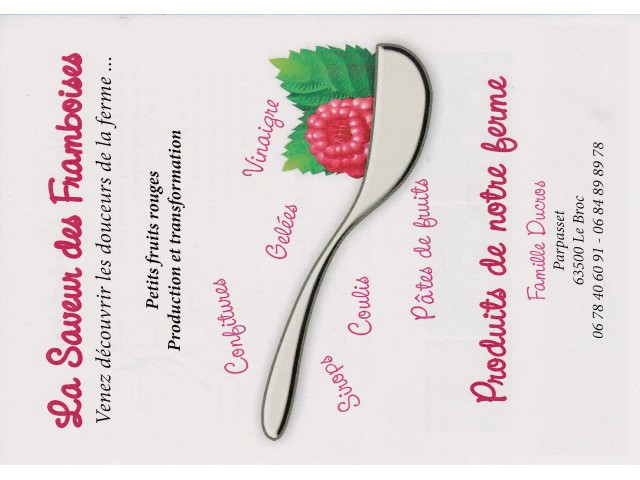 La Saveur des Framboises
Venez découvrir les douceurs de la ferme ...
Petits fruits rouges
Production et transformation
Vinaigre
Gelées
Confitures
Coulis
Sirops
Pâtes de fruits
Produits de notre ferme
Famille Ducros
Parpasset
63500 Le Broc
06 78 40 60 91 - 06 84 89 89 78